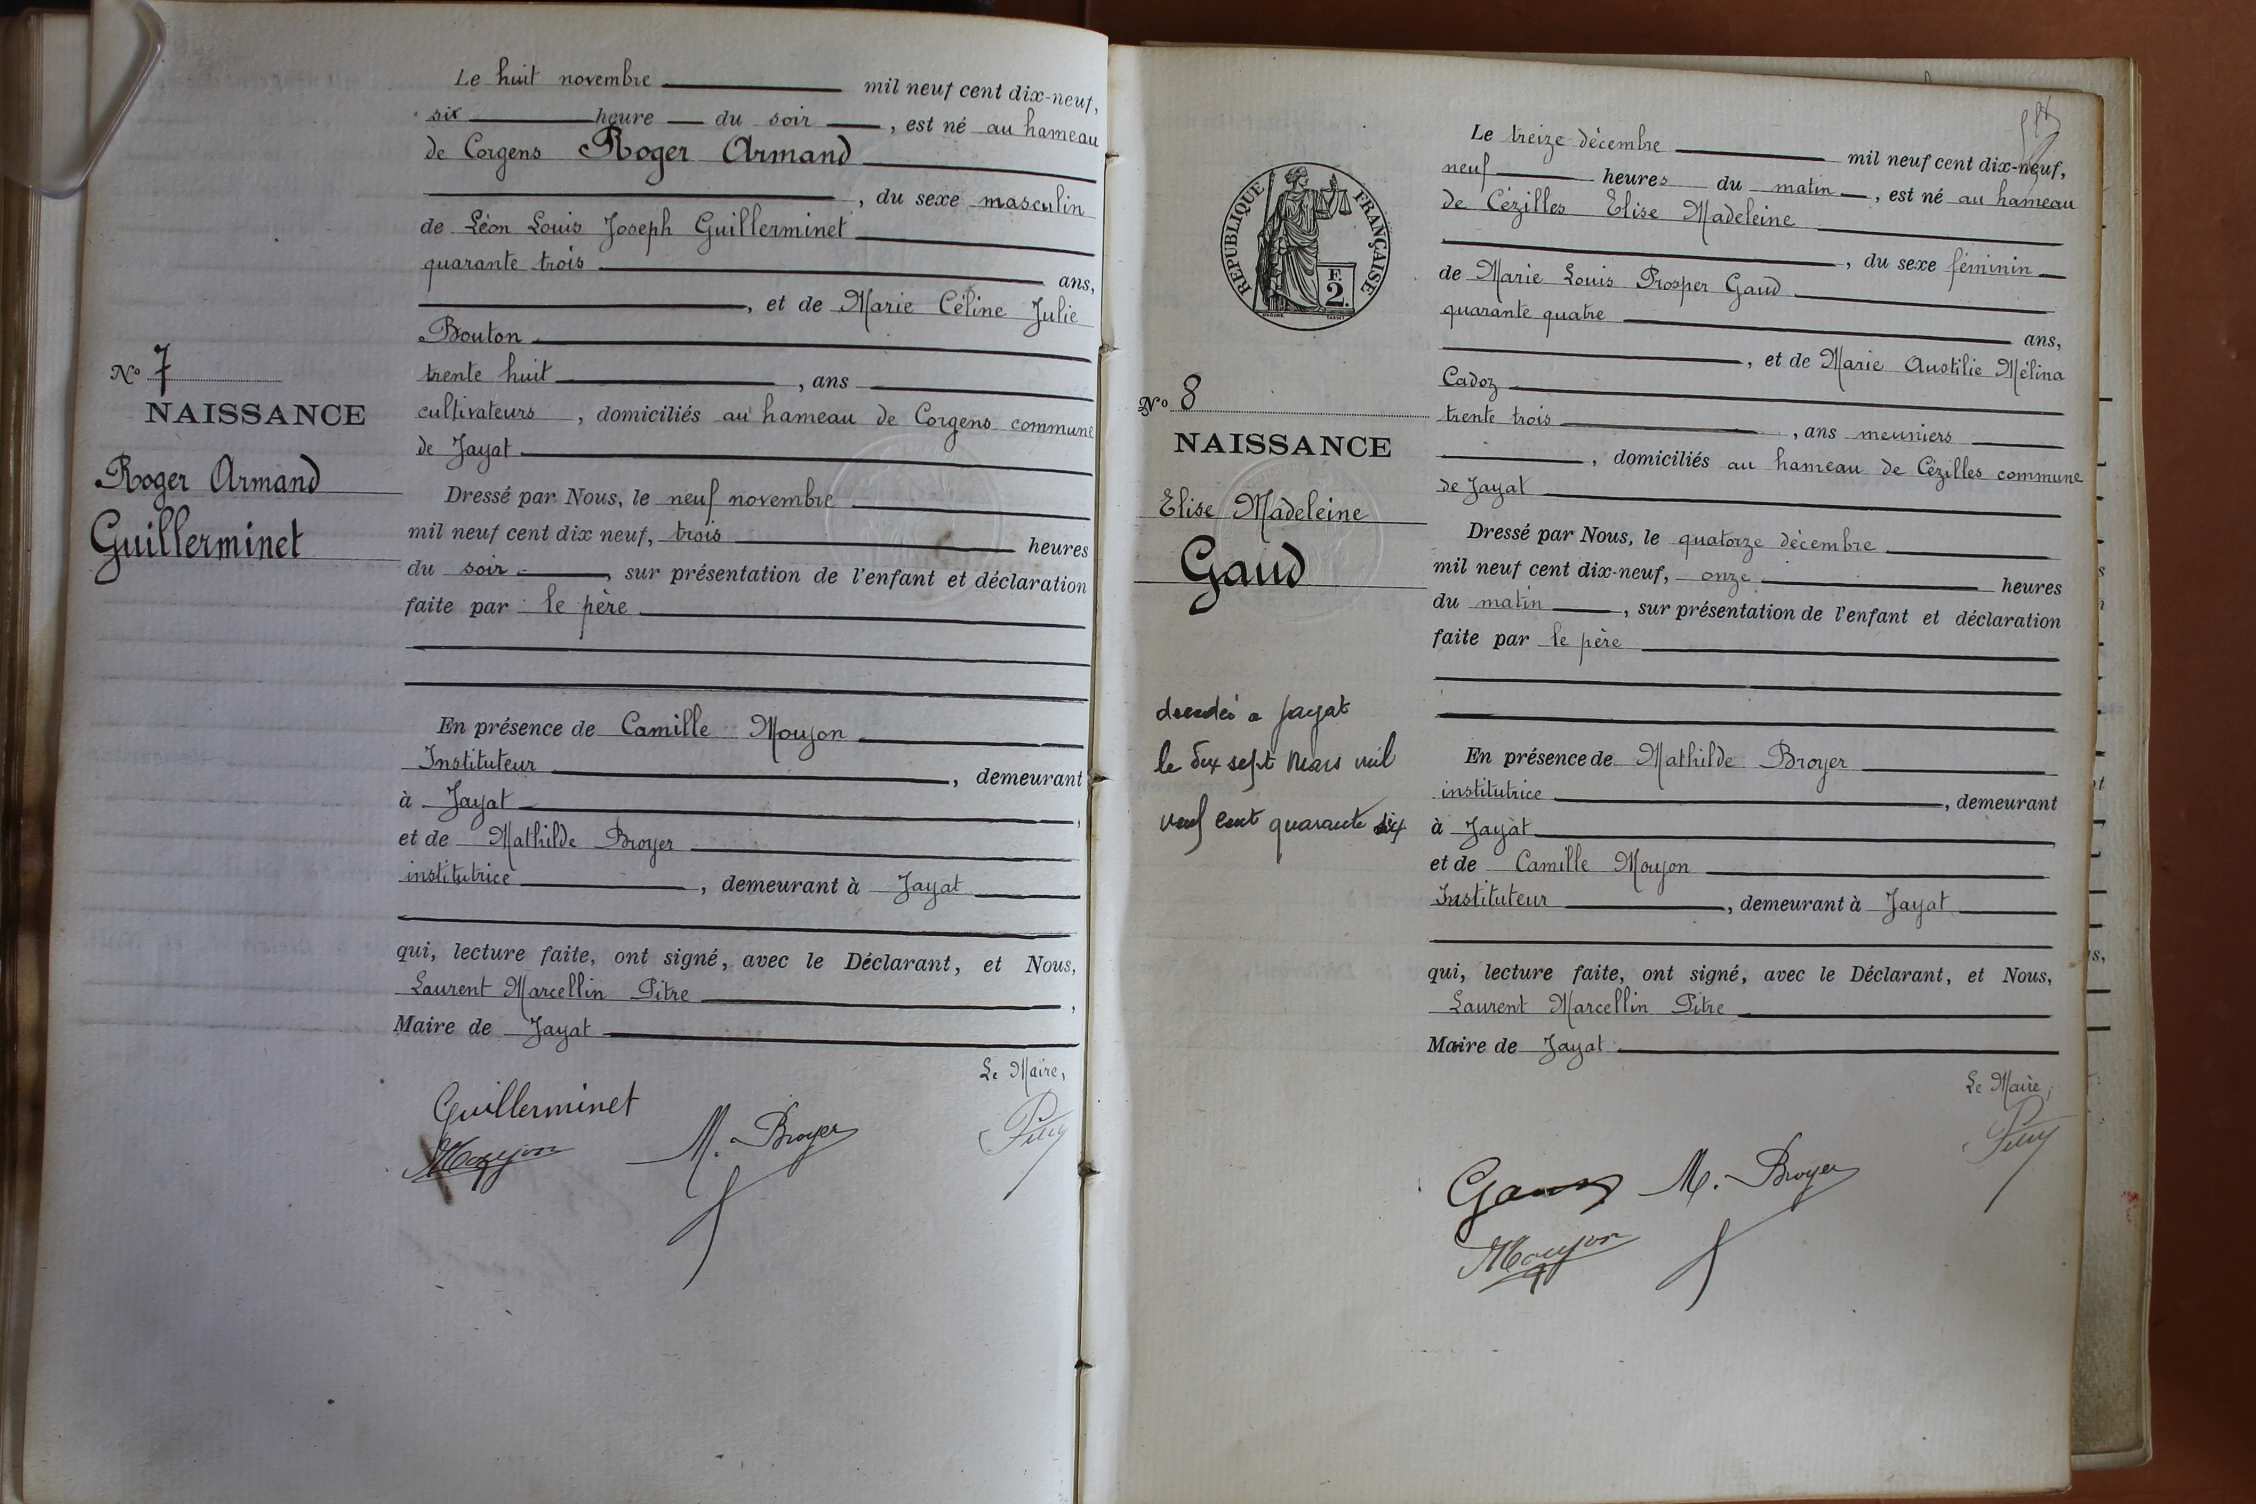 Le huit novembre mil neuf cent dix-neuf,
six heure du soir, est né au hameau
de Corgens Roger Armand
, du sexe masculin
de Léon Louis Joseph Guillerminet
quarante trois ans,
, et de Marie Céline Julie
Bouton
trente huit, ans
cultivateurs, domiciliés au hameau de Corgens commune
de Jayat
Dressé par Nous, le neuf novembre
mil neuf cent dix neuf, trois heures
du soir, sur présentation de l'enfant et déclaration
faite par le père
En présence de Camille Moujon
Instituteur, demeurant
à Jayat,
et de Mathilde Broyer
institutrice, demeurant à Jayat
qui, lecture faite, ont signé, avec le Déclarant, et Nous,
Laurent Marcellin Pitre,
Maire de Jayat
Le Maire,
Guillerminet
Moujon M. Broyer
No 7
NAISSANCE
Roger Armand
Guillerminet
RÉPUBLIQUE FRANÇAISE
F.
2.
No 8
NAISSANCE
Elise Madeleine
Gaud
décédé a Jayat
le dix sept Mars mil
neuf cent quarante six
Le treize décembre mil neuf cent dix-neuf,
neuf heures du matin, est né au hameau
de Cézilles Elise Madeleine
, du sexe féminin
de Marie Louis Prosper Gaud
quarante quatre ans,
, et de Marie Austilie Mélina
Cadoz
trente trois, ans meuniers
, domiciliés au hameau de Cézilles commune
de Jayat
Dressé par Nous, le quatorze décembre
mil neuf cent dix-neuf, onze heures
du matin, sur présentation de l'enfant et déclaration
faite par le père
En présence de Mathilde Broyer
institutrice, demeurant
à Jayat
et de Camille Moujon
Instituteur, demeurant à Jayat
qui, lecture faite, ont signé, avec le Déclarant, et Nous,
Laurent Marcellin Pitre
Maire de Jayat
Le Maire,
Gaud M. Broyer
Moujon